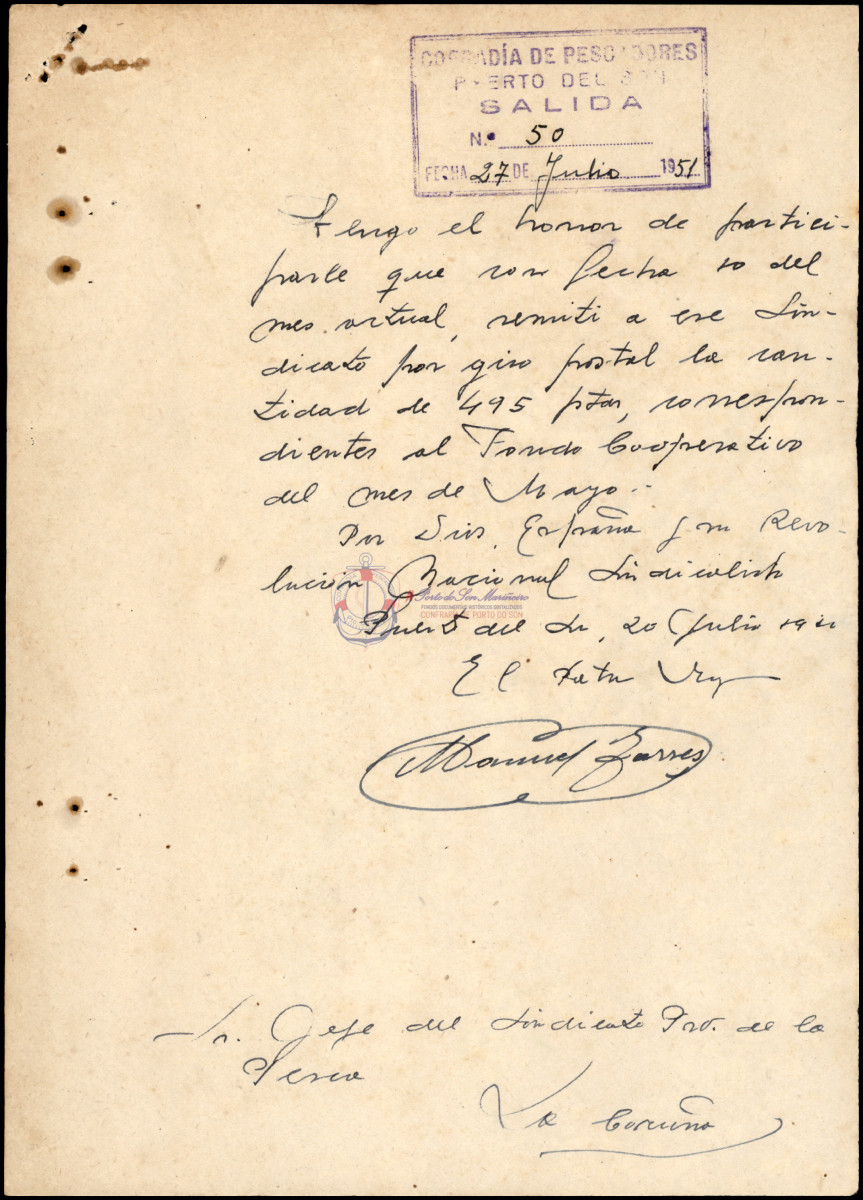 COFRADÍA DE PESCADORES
PUERTO DEL SON
SALIDA
N.º 50
FECHA 27 DE Julio 1951
Tengo el honor de partici-
parle que con fecha 10 del
mes actual, remiti a ese Sin-
dicato por giro postal la can-
tidad de 495 ptas, correspon-
dientes al Fondo Cooperativo
del mes de Mayo.-
Por Dios, España y su Revo-
lucion Nacional Sindicalista
Porto do Son Mariñeiro
FONDOS DOCUMENTAIS HISTÓRICOS DIXITALIZADOS
CONFRARÍA DE PORTO DO SON
Puerto del Son, 20 Julio 1951
El Patron Mayor
Manuel
Sr. Jefe del Sindicato Prov. de la
Pesca
La Coruña